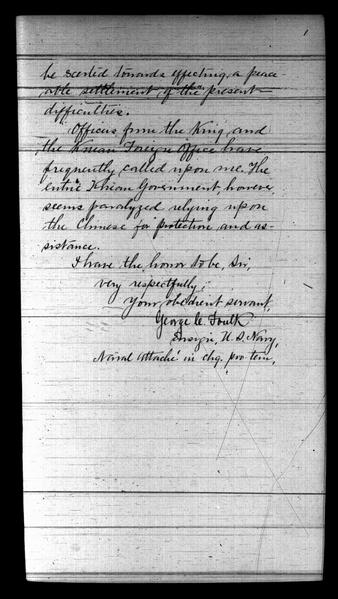 be exerted towards effecting a peace-
able settlement of the present
difficulties.
Officers from the King and
the Korean Foreign Office have
frequently called upon me. The
entire Korean Government, however,
seems paralyzed relying upon
the Chinese for protection and as-
sistance.
I have the honor to be, Sir,
very respectfully,
Your obedient servant,
George C. Foulk
Ensign, U.S. Navy,
Naval attaché in chg. pro tem,